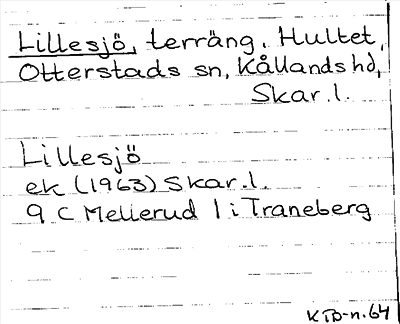 Lillesjö, terräng. Hultet,
Otterstads sn, Kållands hd,
Skar. l.
Lillesjö
ek (1963) Skar. l.
9 C Mellerud l i Traneberg
KTD-n. 64